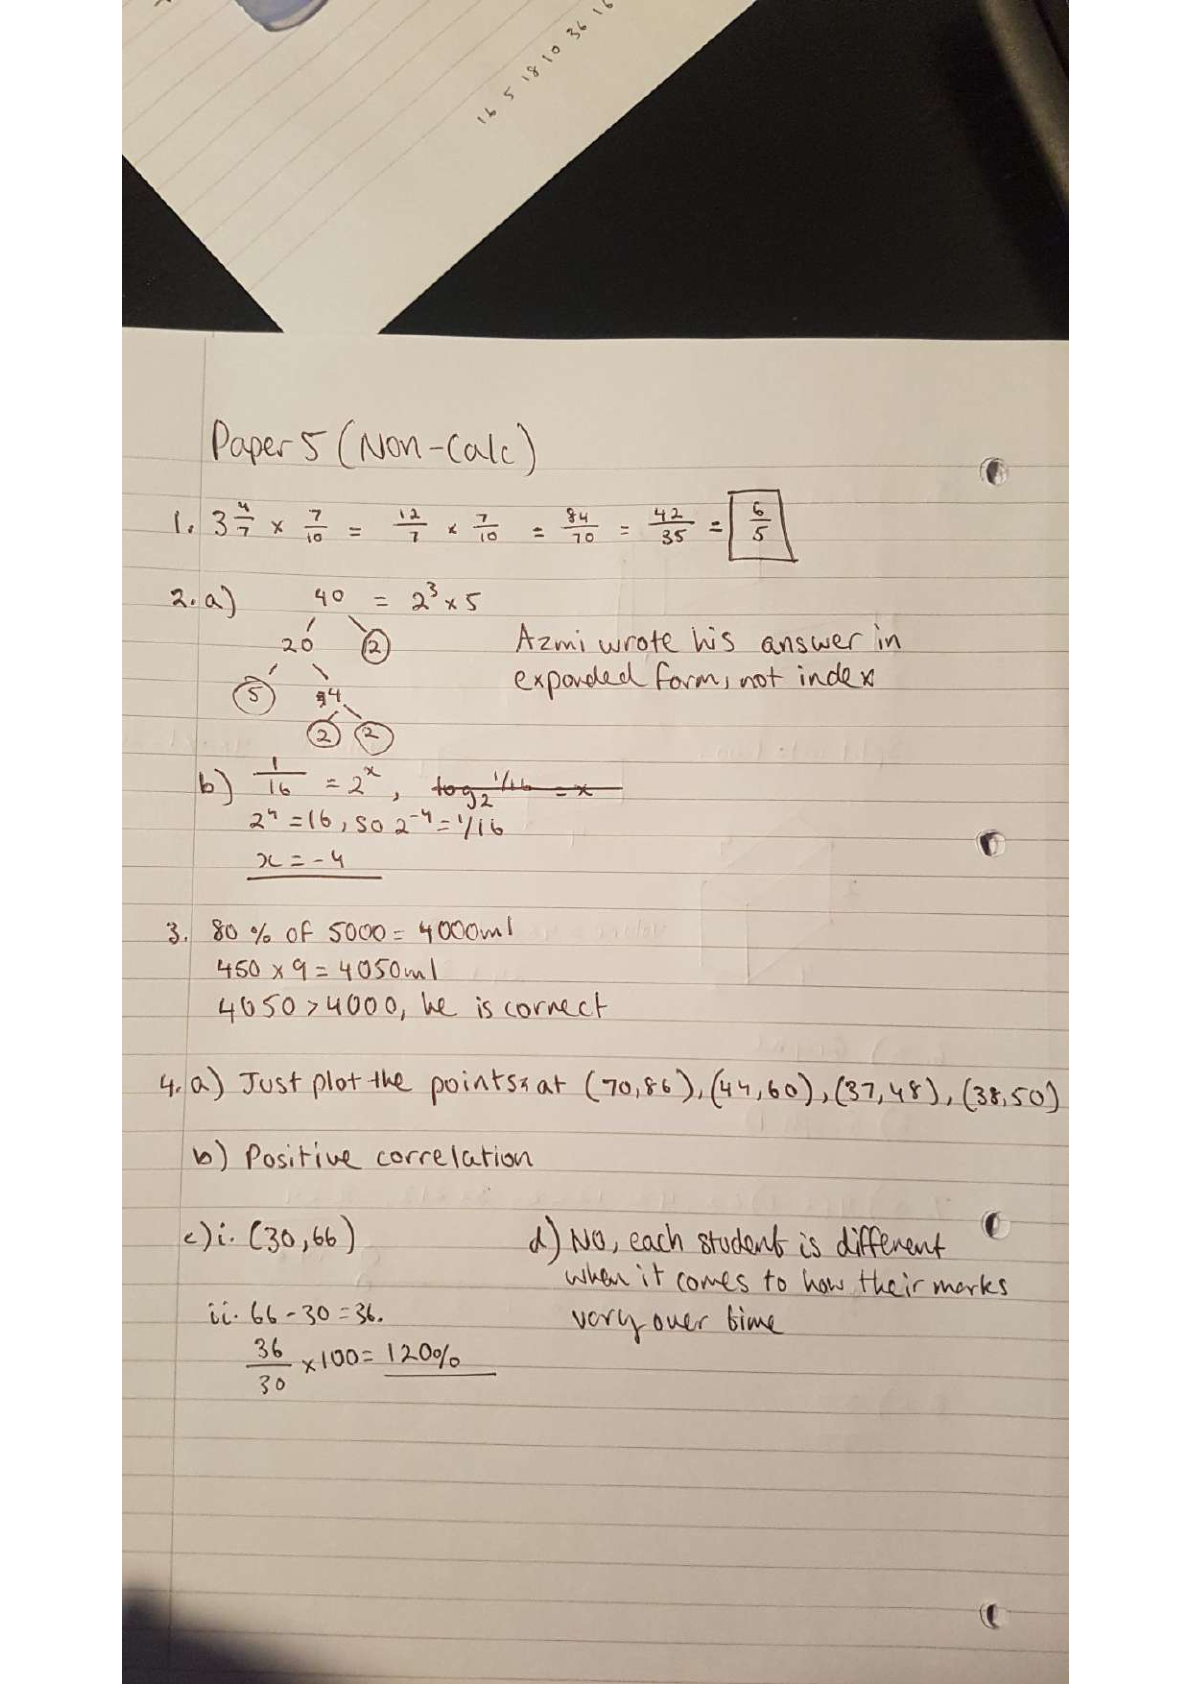 16 5 18 10 36 16
Paper 5 (Non-Calc)
1. 3 4/7 × 7/10 = 12/7 × 7/10 = 84/70 = 42/35 = 6/5
2. a) 40 = 2³ × 5
20 2
5 4
2 2
Azmi wrote his answer in
expanded form, not index
b) 1/16 = 2ˣ, log₂ 1/16 = x
2⁴ = 16, so 2⁻⁴ = 1/16
x = -4
3. 80% of 5000 = 4000ml
450 × 9 = 4050ml
4050 > 4000, he is correct
4. a) Just plot the points at (70,86), (44,60), (37,48), (38,50)
b) Positive correlation
c) i. (30,66)
ii. 66 - 30 = 36.
36/30 × 100 = 120%
d) No, each student is different
when it comes to how their marks
vary over time